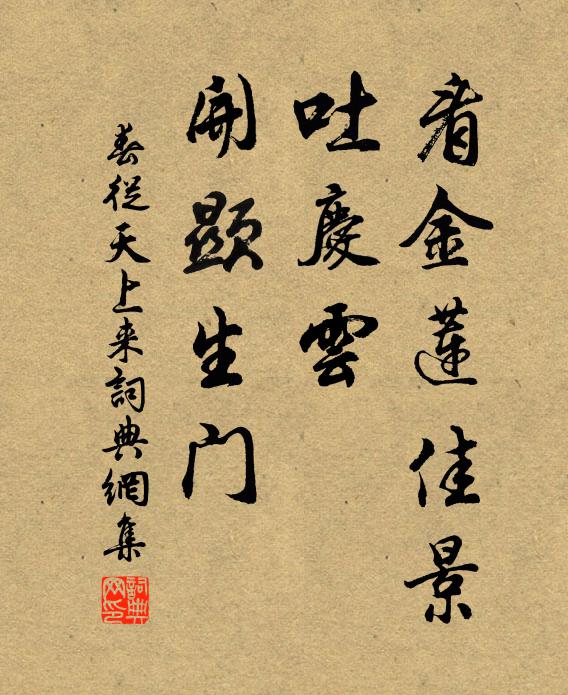 看金蓮佳景
吐慶雲
開顯生门
春從天上来詞典網集
詞典
网印